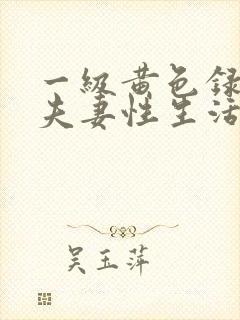 一级黄色录
夫妻性生活
吴玉萍